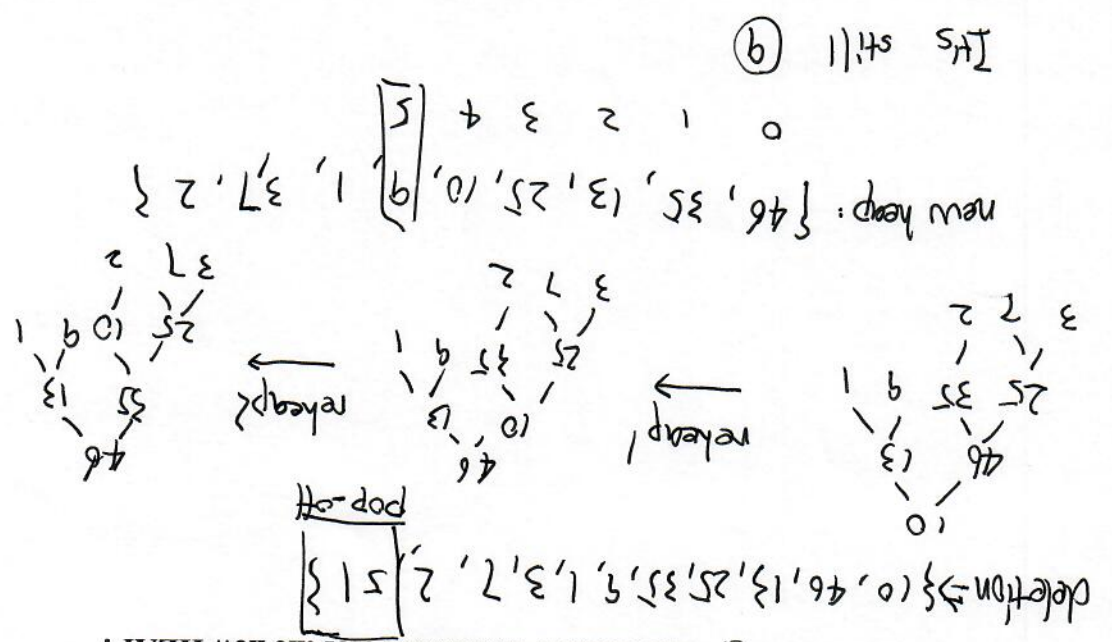 deletion → {10, 46, 13, 25, 35, 9, 1, 3, 7, 2, 51}
pop-off
10
46 13
25 35 9 1
3 7 2
reheap1
46
10 13
25 35 9 1
3 7 2
reheap2
46
35 13
25 10 9 1
3 7 2
new heap: {46, 35, 13, 25, 10, 9, 1, 3, 7, 2}
0 1 2 3 4 5
Its still 9